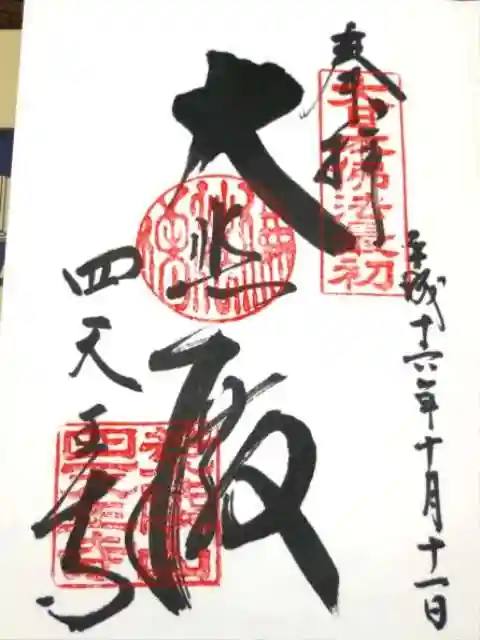 奉拝
大日本佛法最初
平成十六年十月十一日
大悲殿
四天王寺
荒陵山
四天王寺